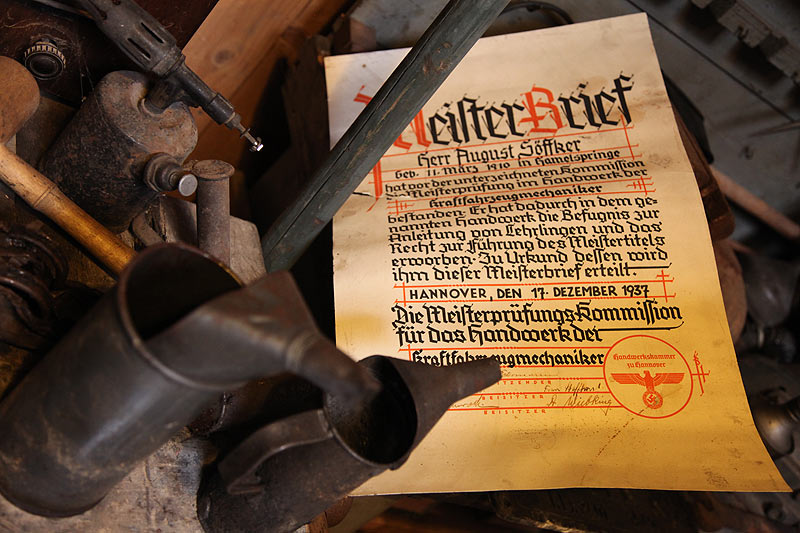 MeisterBrief
Herr August Söffker
geb. 11. März 1910 in Hamelspringe
hat vor der unterzeichneten Kommission
die Meisterprüfung im Handwerk der
Kraftfahrzeugmechaniker
bestanden. Er hat dadurch in dem ge-
nannten Handwerk die Befugnis zur
Anleitung von Lehrlingen und das
Recht zur Führung des Meistertitels
erworben. Zu Urkund dessen wird
ihm dieser Meisterbrief erteilt.
HANNOVER, DEN 17. DEZEMBER 1937
Die Meisterprüfungs-Kommission
für das Handwerk der
Kraftfahrzeugmechaniker
Handwerkskammer
zu Hannover
BEISITZER
BEISITZER